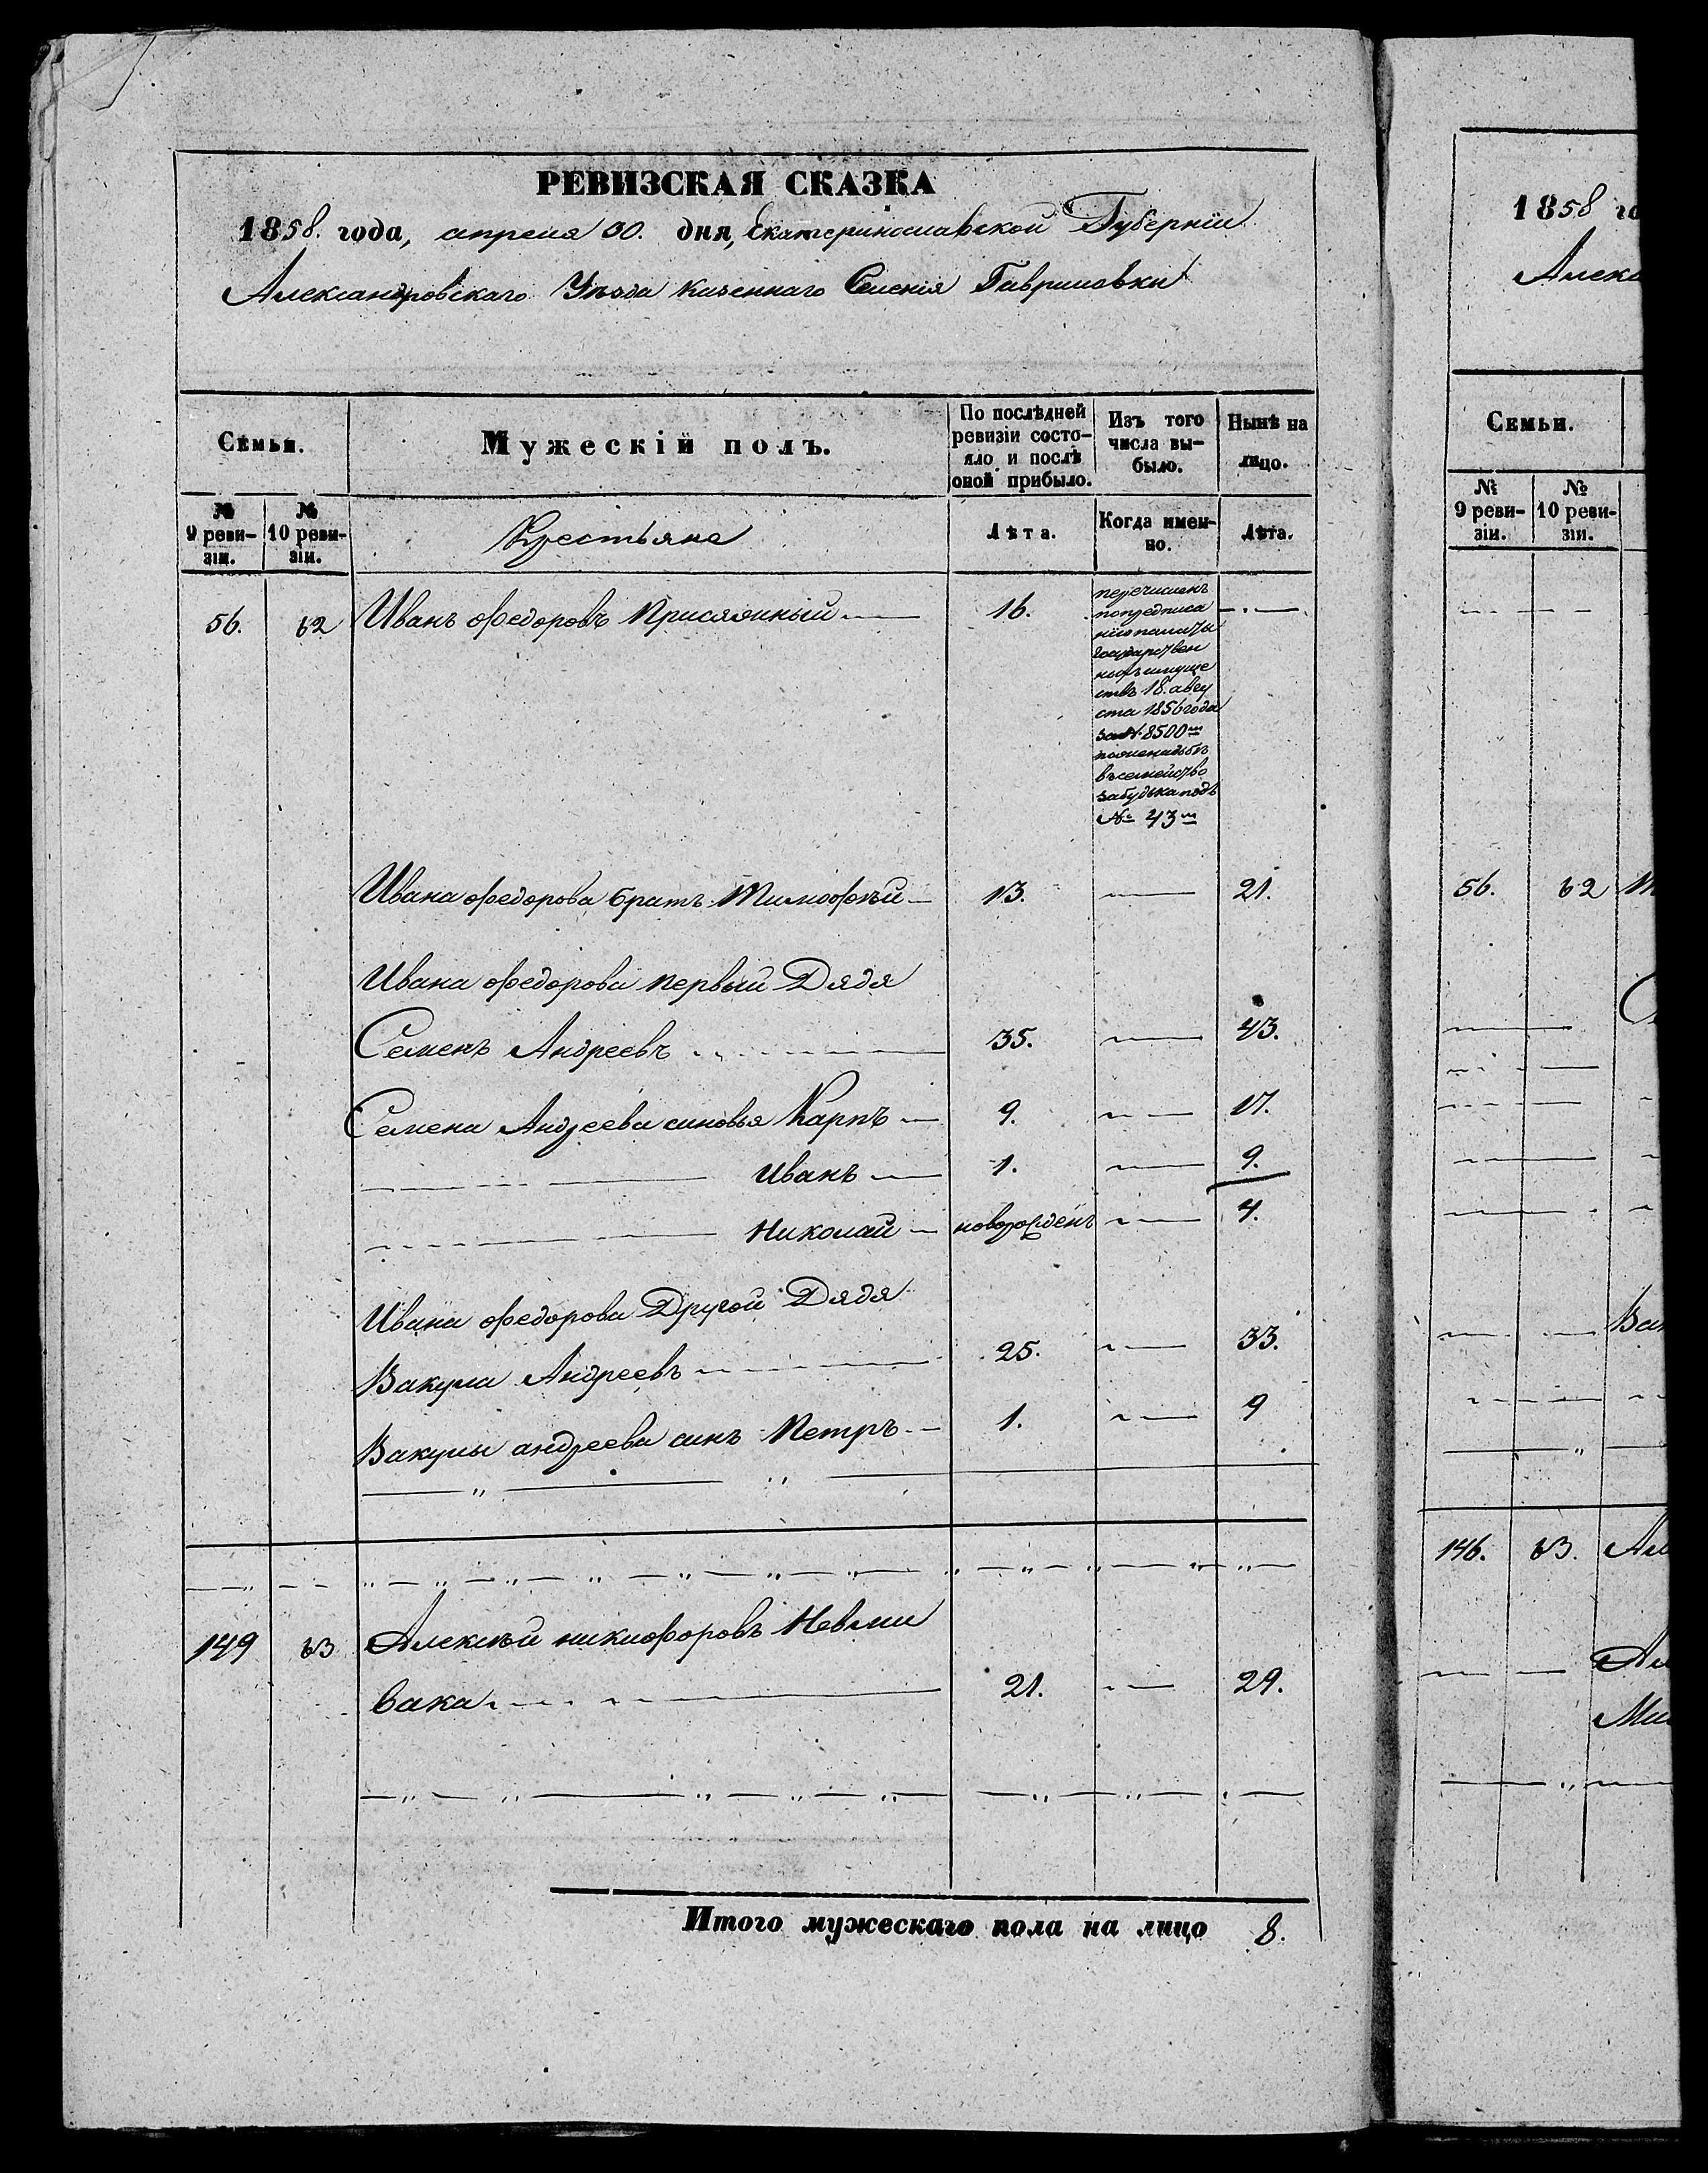 РЕВИЗСКАЯ СКАЗКА
1858. года, апреля 30. дня, Екатеринославской Губерніи
Александровскаго Уѣзда казеннаго Селенія Гавриловки
Семьи.
Мужескій полъ.
По послѣдней ревизіи состояло и послѣ оной прибыло.
Изъ того числа выбыло.
Нынѣ на лицо.
№ 9 ревизіи.
№ 10 ревизіи.
Крестьяне
Лѣта.
Когда именно.
Лѣта.
56. 62 Иванъ Федоровъ Присяжный 16.
перечисленъ
попредписа
нію палаты
Государствен
ныхъ имуще
ствъ 18. авгу
ста 1856 года
за № 8500 м
въ семейство
подъ
№ 43 м
Ивана Федорова братъ Тимофѣй 13. 21.
Ивана Федорова первый Дядя
Семенъ Андреевъ 35. 43.
Семена Андреева сыновья Карпъ 9. 17.
Иванъ 1. 9.
Николай новорожденъ 4.
Ивана Федорова Другой Дядя
Вакула Андреевъ 25. 33.
Вакулы андреева сынъ Петръ 1. 9
149 63 Алексѣй никифоровъ Невли
вака 21. 29.
Итого мужескаго пола на лицо 8.
1858 го
Алекс
Семьи.
№ 9 ревизіи.
№ 10 ревизіи.
56. 62
Вак
146. 63. Ал
Ал